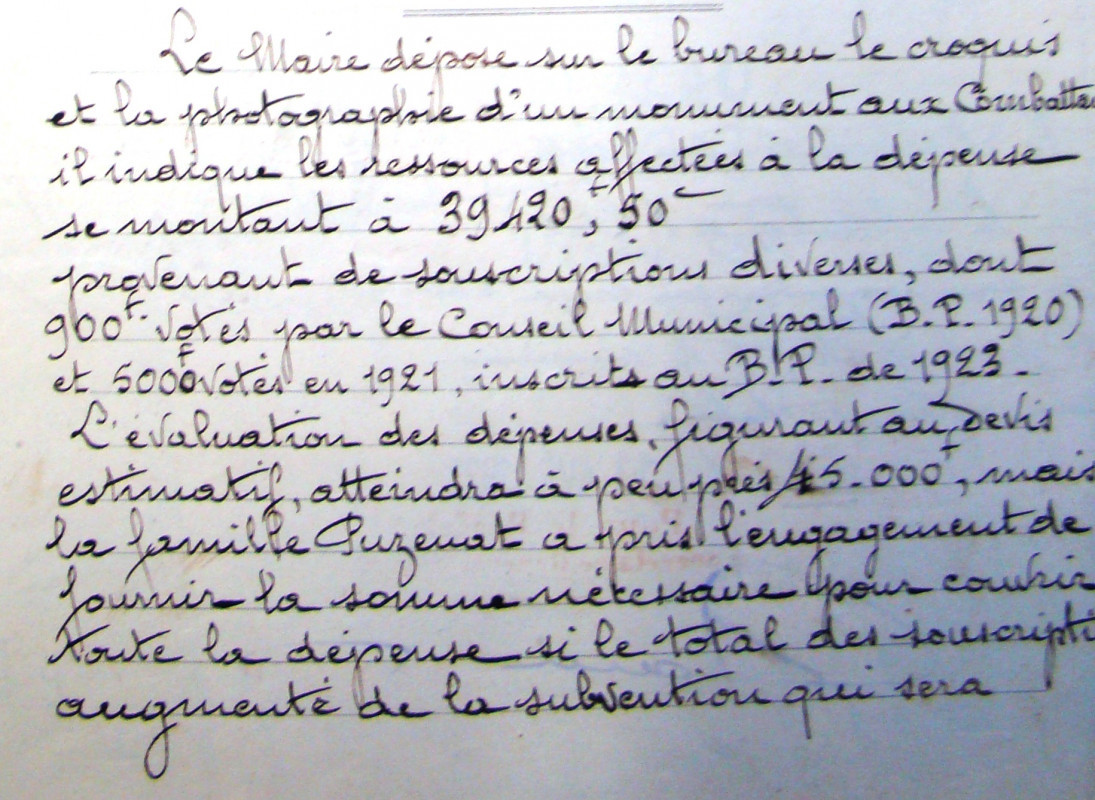 Le Maire dépose sur le bureau le croquis
et la photographie d'un monument aux Combatta
il indique les ressources affectées à la dépense
se montant à 39.420f, 50c
provenant de souscriptions diverses, dont
900f. votés par le Conseil Municipal (B.P. 1920)
et 5000f votés en 1921, inscrits au B.P. de 1923.
L'évaluation des dépenses, figurant au devis
estimatif, atteindra à peu près 45.000f, mais
la famille Puzenat a pris l'engagement de
fournir la somme nécessaire pour couvrir
toute la dépense si le total des souscripti
augmenté de la subvention qui sera